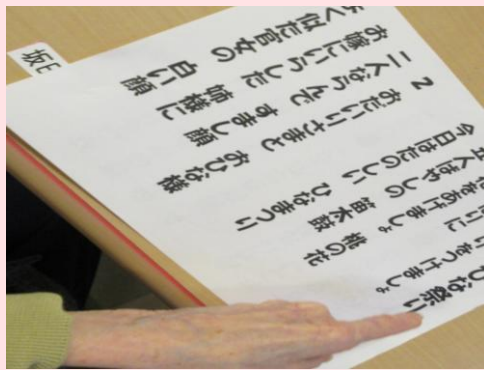 ひな祭り
をつけましょ
りに
花をあげましょ 桃の花
五人ばやしの 笛太鼓
今日はたのしい ひなまつり
2
おだいりさまと おひな様
二人ならんで すまし顔
お嫁にいらした 姉様に
く似た官女の 白い顔
坂